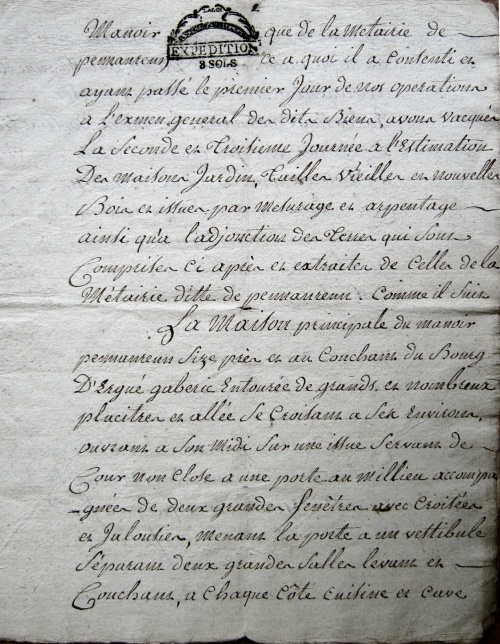 LA LOI
EXPEDITION
8 SOLS
2
Manoir que de la Metairie de
pennanreun te a quoi il a Consenti et
ayant passé le premier Jour de nos operations
a L'Examen general des dits Biens, avons vacqué
La Seconde et Troisieme Journée a l'Estimation
Des maisons Jardin, Taillés vieilles et nouvelles
Bois et issues par mesurage et arpentage
ainsi qu'a l'adjonction des terres qui sont
Comprises ci après et extraites de Celles de la
Métairie ditte de pennanreun. Comme il suit
La Maison principale du manoir
pennanreun Size près et au Couchant du Bourg
D'Ergué gaberic Entourée de grands et nombreux
placitres et allée se Croisant a ses Environs,
ouvrant a son Midi sur une issue servant de
Cour non Close a une porte au millieu accompa
-gnée de deux grandes fenêtres avec Croisées
et Jalousies, menant la porte a un vettibule
Séparant deux grandes Salles levant et
Couchant, a Chaque Côté Cuisine et Cave